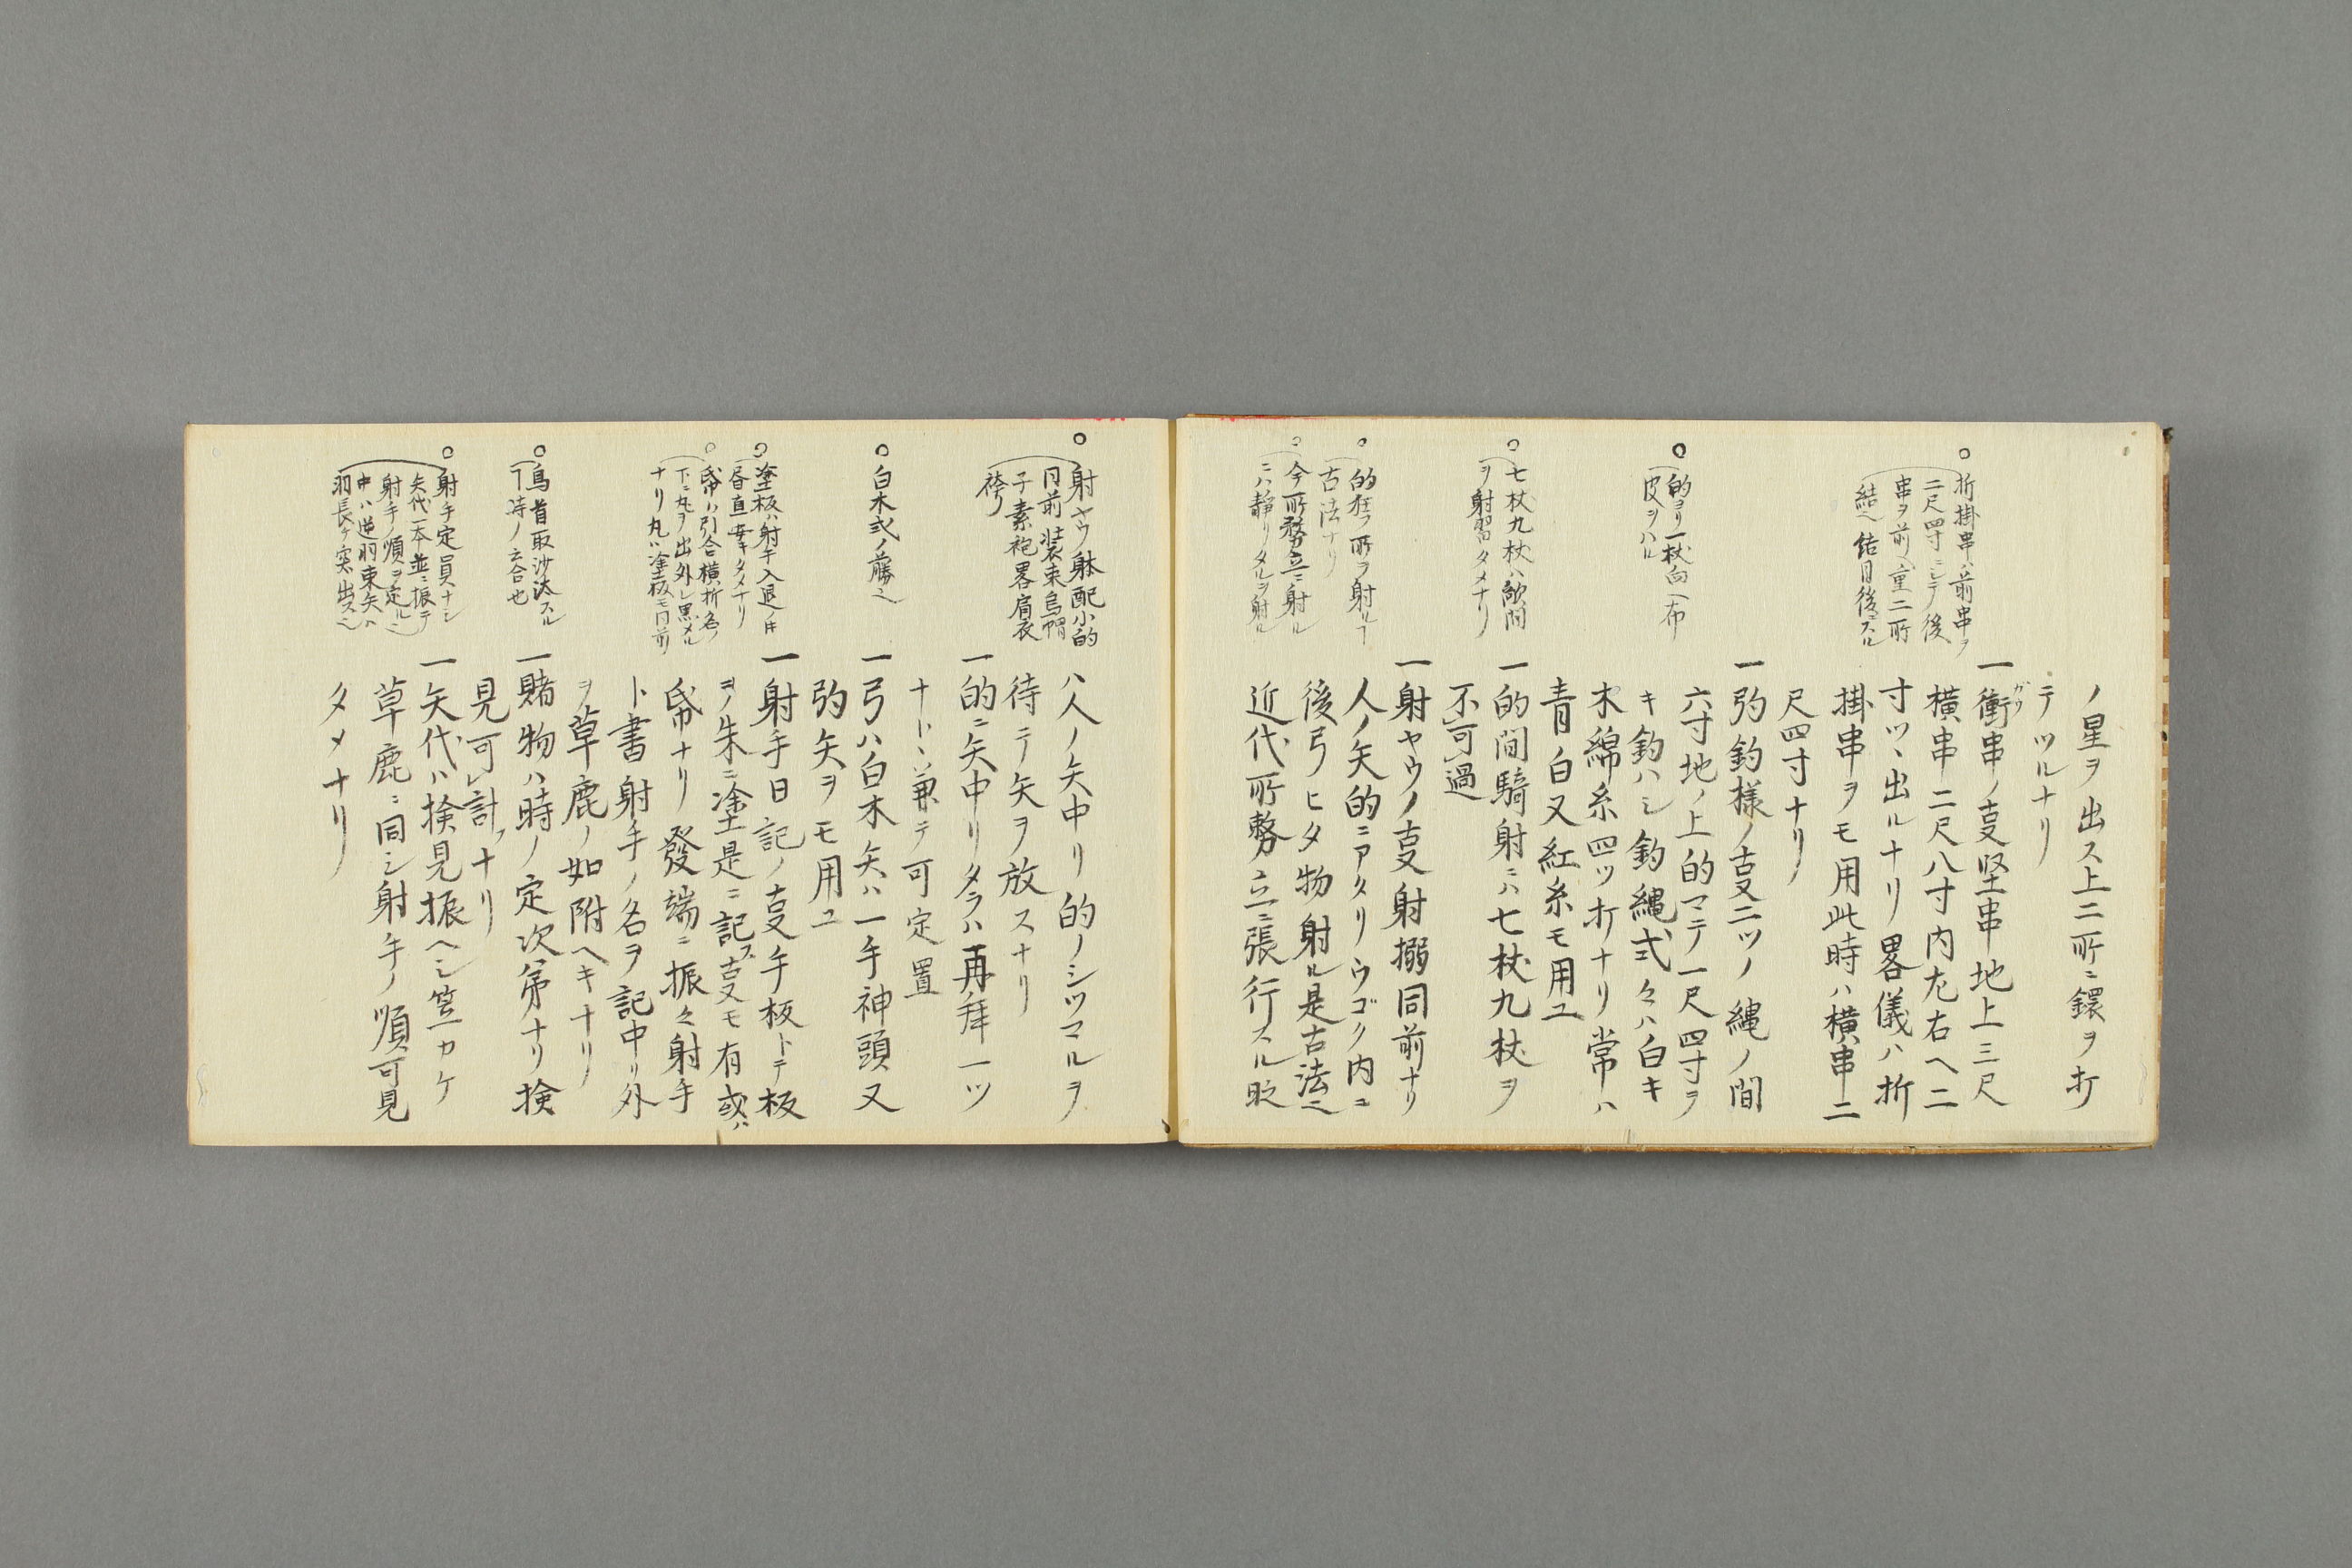 折掛串ハ前串ヲ
二尺四寸ニシテ後
串ヲ前ヘ重二所
結之結目後ニスル
的ヨリ一杖向ニ布
皮ヲハル
七杖九杖ハ敵間
ヲ射習タメナリ
的狂フ所ヲ射ルヿ
古法ナリ
今所務立ニ射ル
ニハ靜リタルヲ射ル
ノ星ヲ出ス上二所ニ鐶ヲ打
テツルナリ
一衝串ノ叓竪串地上三尺
横串二尺八寸内左右ヘ二
寸ツヽ出ルナリ畧儀ハ折
掛串ヲモ用此時ハ横串二
尺四寸ナリ
一的釣様ノ叓二ツノ縄ノ間
六寸地ノ上的マテ一尺四寸ヲ
キ釣ハシ釣縄式々ハ白キ
木綿糸四ツ打ナリ常ハ
青白又紅糸モ用ユ
一的間騎射ニハ七杖九杖ヲ
不可過
一射ヤウノ叓射搦同前ナリ
人ノ矢的ニアタリウゴク内ニ
後弓ヒタ物射ル是古法之
近代所務立ニ張行スル時
射ヤウ躰配小的
同前装束烏帽
子素袍畧肩衣
袴
白木弐ノ藤之
塗板ハ射手入退ノ時
昼直 タメナリ
帋ハ引合横折名ノ
下ニ丸ヲ出外レ黒メル
ナリ丸ハ塗板モ同前
鳥首取沙汰スル
ヿ時ノ立合也
射手定員ナシ
矢代一本並ニ振テ
射手ノ順ヲ定ル之
中ハ逆羽束矢ハ
羽長ケ突出ス之
ハ人ノ矢中リ的ノシツマルヲ
待テ矢ヲ放スナリ
一的ニ矢中リタラハ再拜一ツ
ナトヽ兼テ可定置
一弓ハ白木矢ハ一手神頭又
的矢ヲモ用ユ
一射手日記ノ叓手板トテ板
ヲ朱ニ塗是ニ記ス叓モ有或ハ
帋ナリ發端ニ振々射手
ト書射手ノ名ヲ記中リ外
ヲ草鹿ノ如附ヘキナリ
一賭物ハ時ノ定次第ナリ検
見可レ計フナリ
一矢代ハ検見振ヘシ笠カケ
草鹿ニ同シ射手ノ順可見
タメナリ